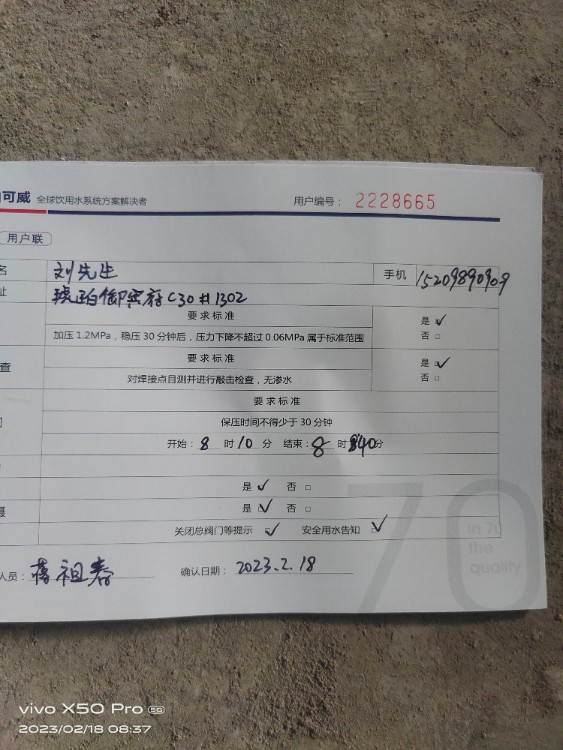 可威 全球饮用水系统方案解决者 用户编号： 2228665
用户联
名 刘先生 手机 15209890909
址 琥珀御宾府C30#1302
要求标准 是 ✓
加压1.2MPa，稳压30分钟后，压力下降不超过0.06MPa属于标准范围 否 □
查 要求标准 是 ✓
对焊接点目测并进行敲击检查，无渗水 否 □
要求标准
保压时间不得少于30分钟
开始：8 时 10 分 结束：8 时 40 分
是 ✓ 否 □
是 ✓ 否 □
关闭总阀门等提示 ✓ 安全用水告知 ✓
人员： 蒋祖春 确认日期： 2023.2.18
70
In 70
the
quality
vivo X50 Pro 5G
2023/02/18 08:37